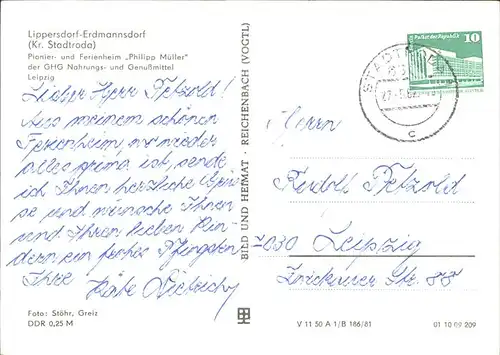 Lippersdorf-Erdmannsdorf
(Kr. Stadtroda)
Pionier- und Ferienheim „Philipp Müller"
der GHG Nahrungs- und Genußmittel
Leipzig
Lieber Herr Petzold!
Aus meinem schönen
Ferienheim, wo wieder
alles prima ist, sende
ich Ihnen herzliche Grüs-
se und wünsche Ihnen
und Ihren lieben Kin-
dern ein frohes Pfingsten
Ihre
Käte Dietrich
Foto: Stöhr, Greiz
DDR 0,25 M
BILD UND HEIMAT · REICHENBACH (VOGTL)
V 11 50 A 1/B 186/81
01 10 09 209
Palast der Republik
10
STADTRODA
c
Herrn
Rudolf Petzold
7030 Leipzig
Zwickauer Str.